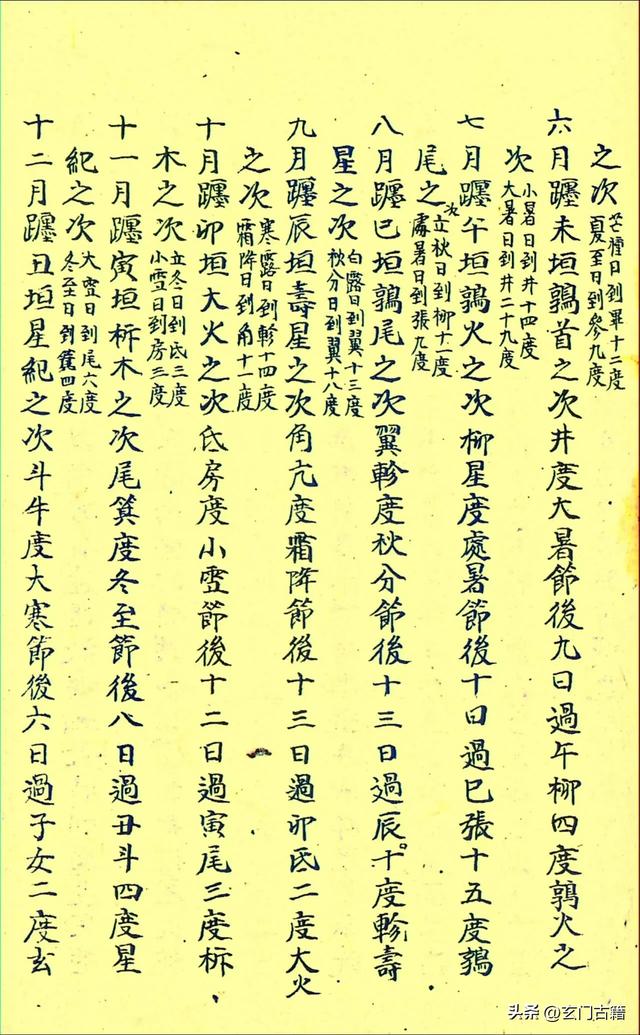 之次芒種日到畢十二度夏至日到參九度
六月躔未垣鶉首之次井度大暑節後九日過午柳四度鶉火之
次小暑日到井十四度大暑日到井二十九度
七月躔午垣鶉火之次柳星度處暑節後十日過巳張十五度鶉
尾之次立秋日到柳十一度處暑日到張九度
八月躔巳垣鶉尾之次翼軫度秋分節後十三日過辰十度軫壽
星之次白露日到翼十三度秋分日到翼十八度
九月躔辰垣壽星之次角亢度霜降節後十三日過卯氐二度大火
之次寒露日到軫十四度霜降日到角十一度
十月躔卯垣大火之次氐房度小雪節後十二日過寅尾三度析
木之次立冬日到氐三度小雪日到房三度
十一月躔寅垣析木之次尾箕度冬至節後八日過丑斗四度星
紀之次大雪日到尾六度冬至日到箕四度
十二月躔丑垣星紀之次斗牛度大寒節後六日過子女二度玄
头条 @玄门古籍